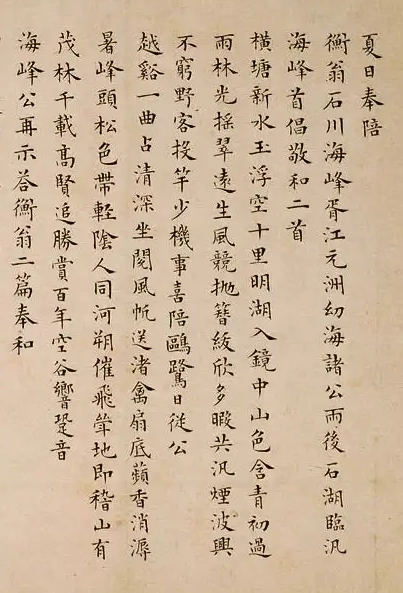 夏日奉陪
衡翁石川海峰胥江元洲幼海諸公雨後石湖臨汎
海峰首倡敬和二首
橫塘新水玉浮空十里明湖入鏡中山色含青初過
雨林光搖翠遠生風競拋簪紱欣多暇共汎煙波興
不窮野客投竿少機事喜陪鷗鷺日從公
越谿一曲占清深坐閱風帆送渚禽扇底蘋香消溽
暑峰頭松色帶輕陰人同河朔催飛斝地即稽山有
茂林千載高賢追勝賞百年空谷響跫音
海峰公再示答衡翁二篇奉和